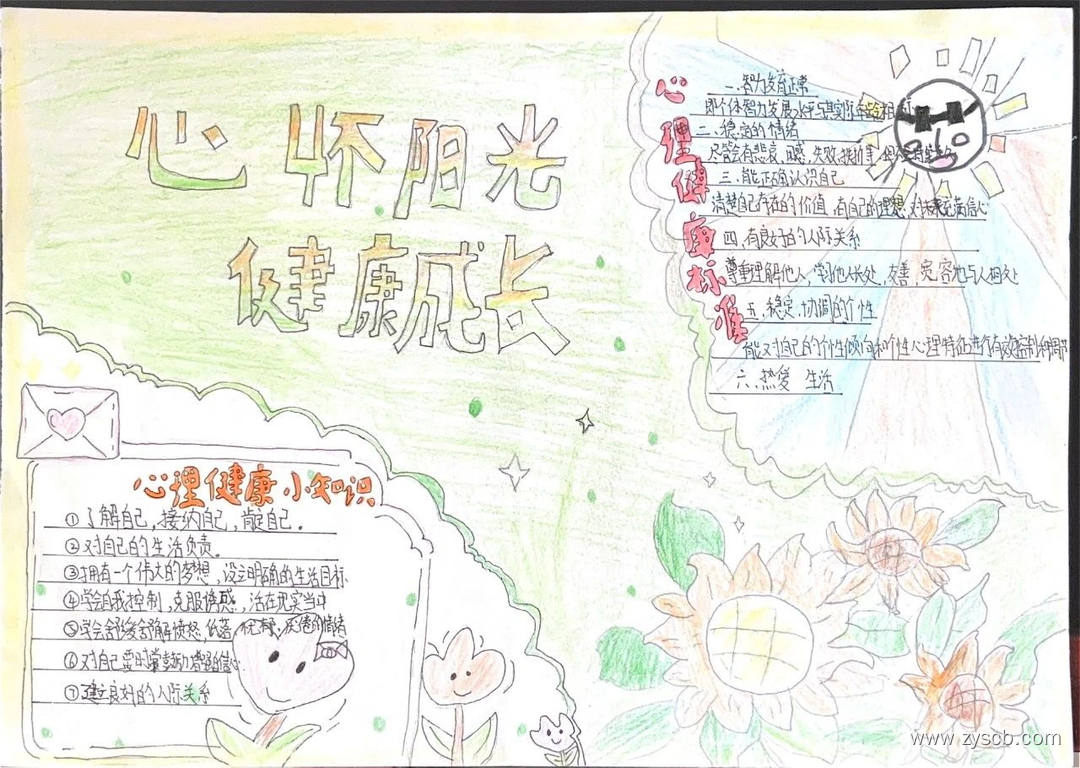 心怀阳光
健康成长
心理健康标准
一.智力发育正常
即个体智力发展水平与其实际年龄相
二.稳定的情绪
尽管会有悲哀,困惑,失败,挫折等,但
三.能正确认识自己
清楚自己存在的价值,有自己的理想,对未来充满信心
四.有良好的人际关系
尊重理解他人,学习他人长处,友善,宽容地与人相处
五.稳定.协调的个性
能对自己的个性倾向和个性心理特征进行有效控制和调节
六.热爱 生活
心理健康小知识
①了解自己,接纳自己,肯定自己。
②对自己的生活负责。
③拥有一个伟大的梦想,设立明确的生活目标
④学会自我控制,克服诱惑,活在现实当中
⑤学会舒缓舒解愤怒,忧郁 的情绪
⑥对自己要时常鼓励增强信心
⑦建立良好的人际关系
www.zyscb.com